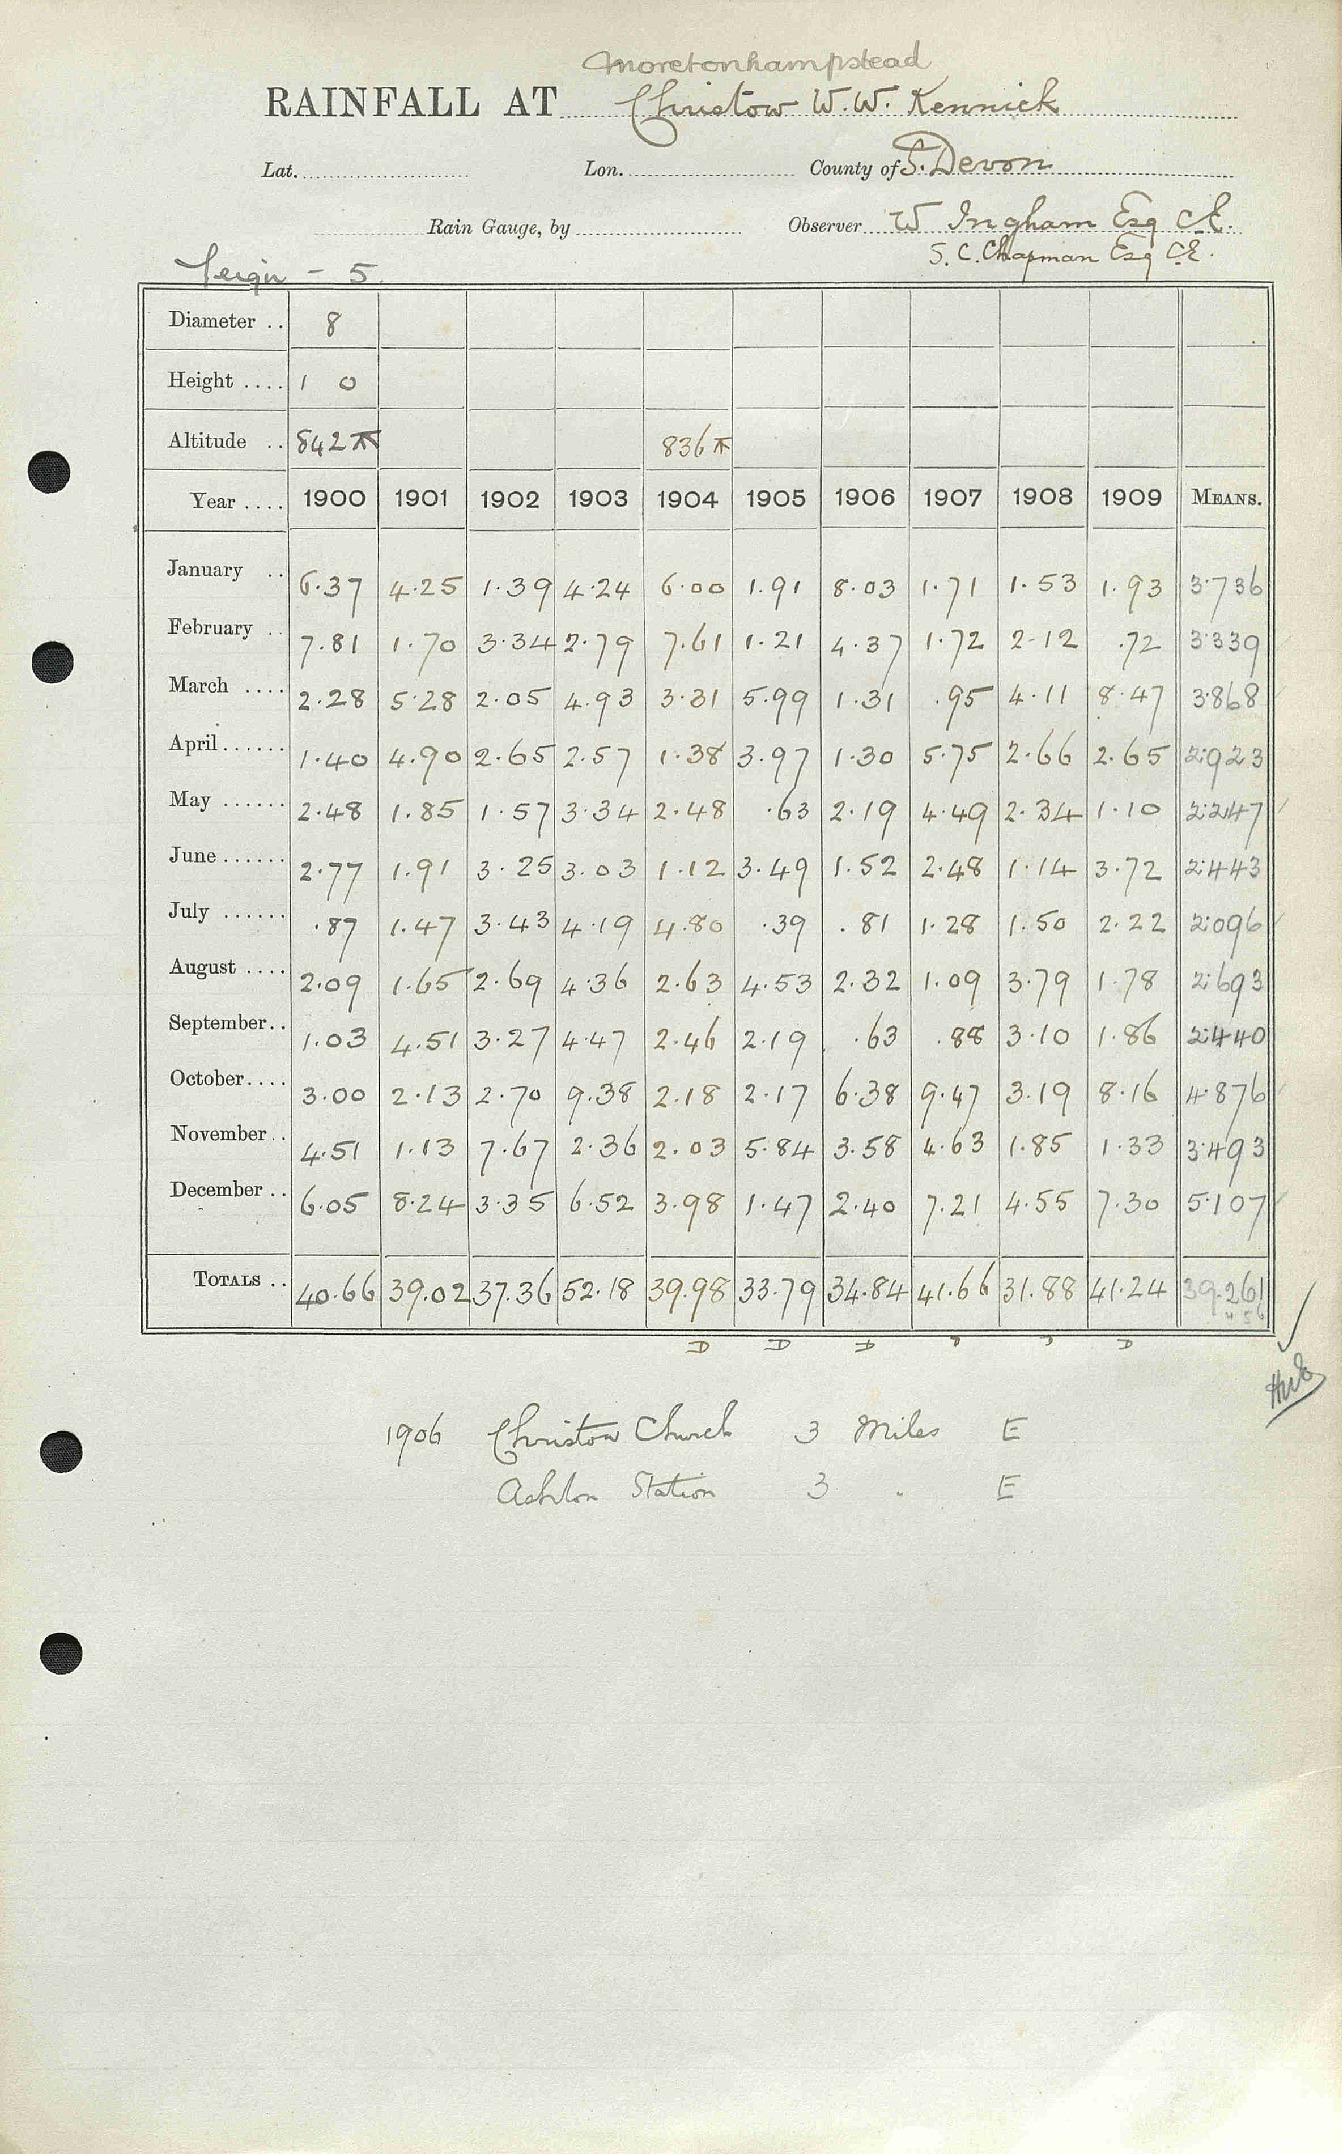 Moretonhampstead
RAINFALL AT Christow W.W. Kennick
Lat. Lon. County of S. Devon
Rain Gauge, by Observer W Ingham Esq C.E.
S. C. Chapman Esq C.E.
Teign - 5
Diameter .. 8
Height .... 1 0
Altitude .. 842 836
Year .... 1900 1901 1902 1903 1904 1905 1906 1907 1908 1909 MEANS.
January .. 6.37 4.25 1.39 4.24 6.00 1.91 8.03 1.71 1.53 1.93 3.736
February .. 7.81 1.70 3.34 2.79 7.61 1.21 4.37 1.72 2.12 .72 3.339
March .... 2.28 5.28 2.05 4.93 3.31 5.99 1.31 .95 4.11 8.47 3.868
April...... 1.40 4.90 2.65 2.57 1.38 3.97 1.30 5.75 2.66 2.65 2.923
May ...... 2.48 1.85 1.57 3.34 2.48 .63 2.19 4.49 2.34 1.10 2.247
June...... 2.77 1.91 3.25 3.03 1.12 3.49 1.52 2.48 1.14 3.72 2.443
July ...... .87 1.47 3.43 4.19 4.80 .39 .81 1.28 1.50 2.22 2.096
August .... 2.09 1.65 2.69 4.36 2.63 4.53 2.32 1.09 3.79 1.78 2.693
September.. 1.03 4.51 3.27 4.47 2.46 2.19 .63 .88 3.10 1.86 2.440
October.... 3.00 2.13 2.70 9.38 2.18 2.17 6.38 9.47 3.19 8.16 4.876
November.. 4.51 1.13 7.67 2.36 2.03 5.84 3.58 4.63 1.85 1.33 3.493
December .. 6.05 8.24 3.35 6.52 3.98 1.47 2.40 7.21 4.55 7.30 5.107
TOTALS .. 40.66 39.02 37.36 52.18 39.98 33.79 34.84 41.66 31.88 41.24 39.261
D D D D
1906 Christow Church 3 Miles E
Ashton Station 3 " E